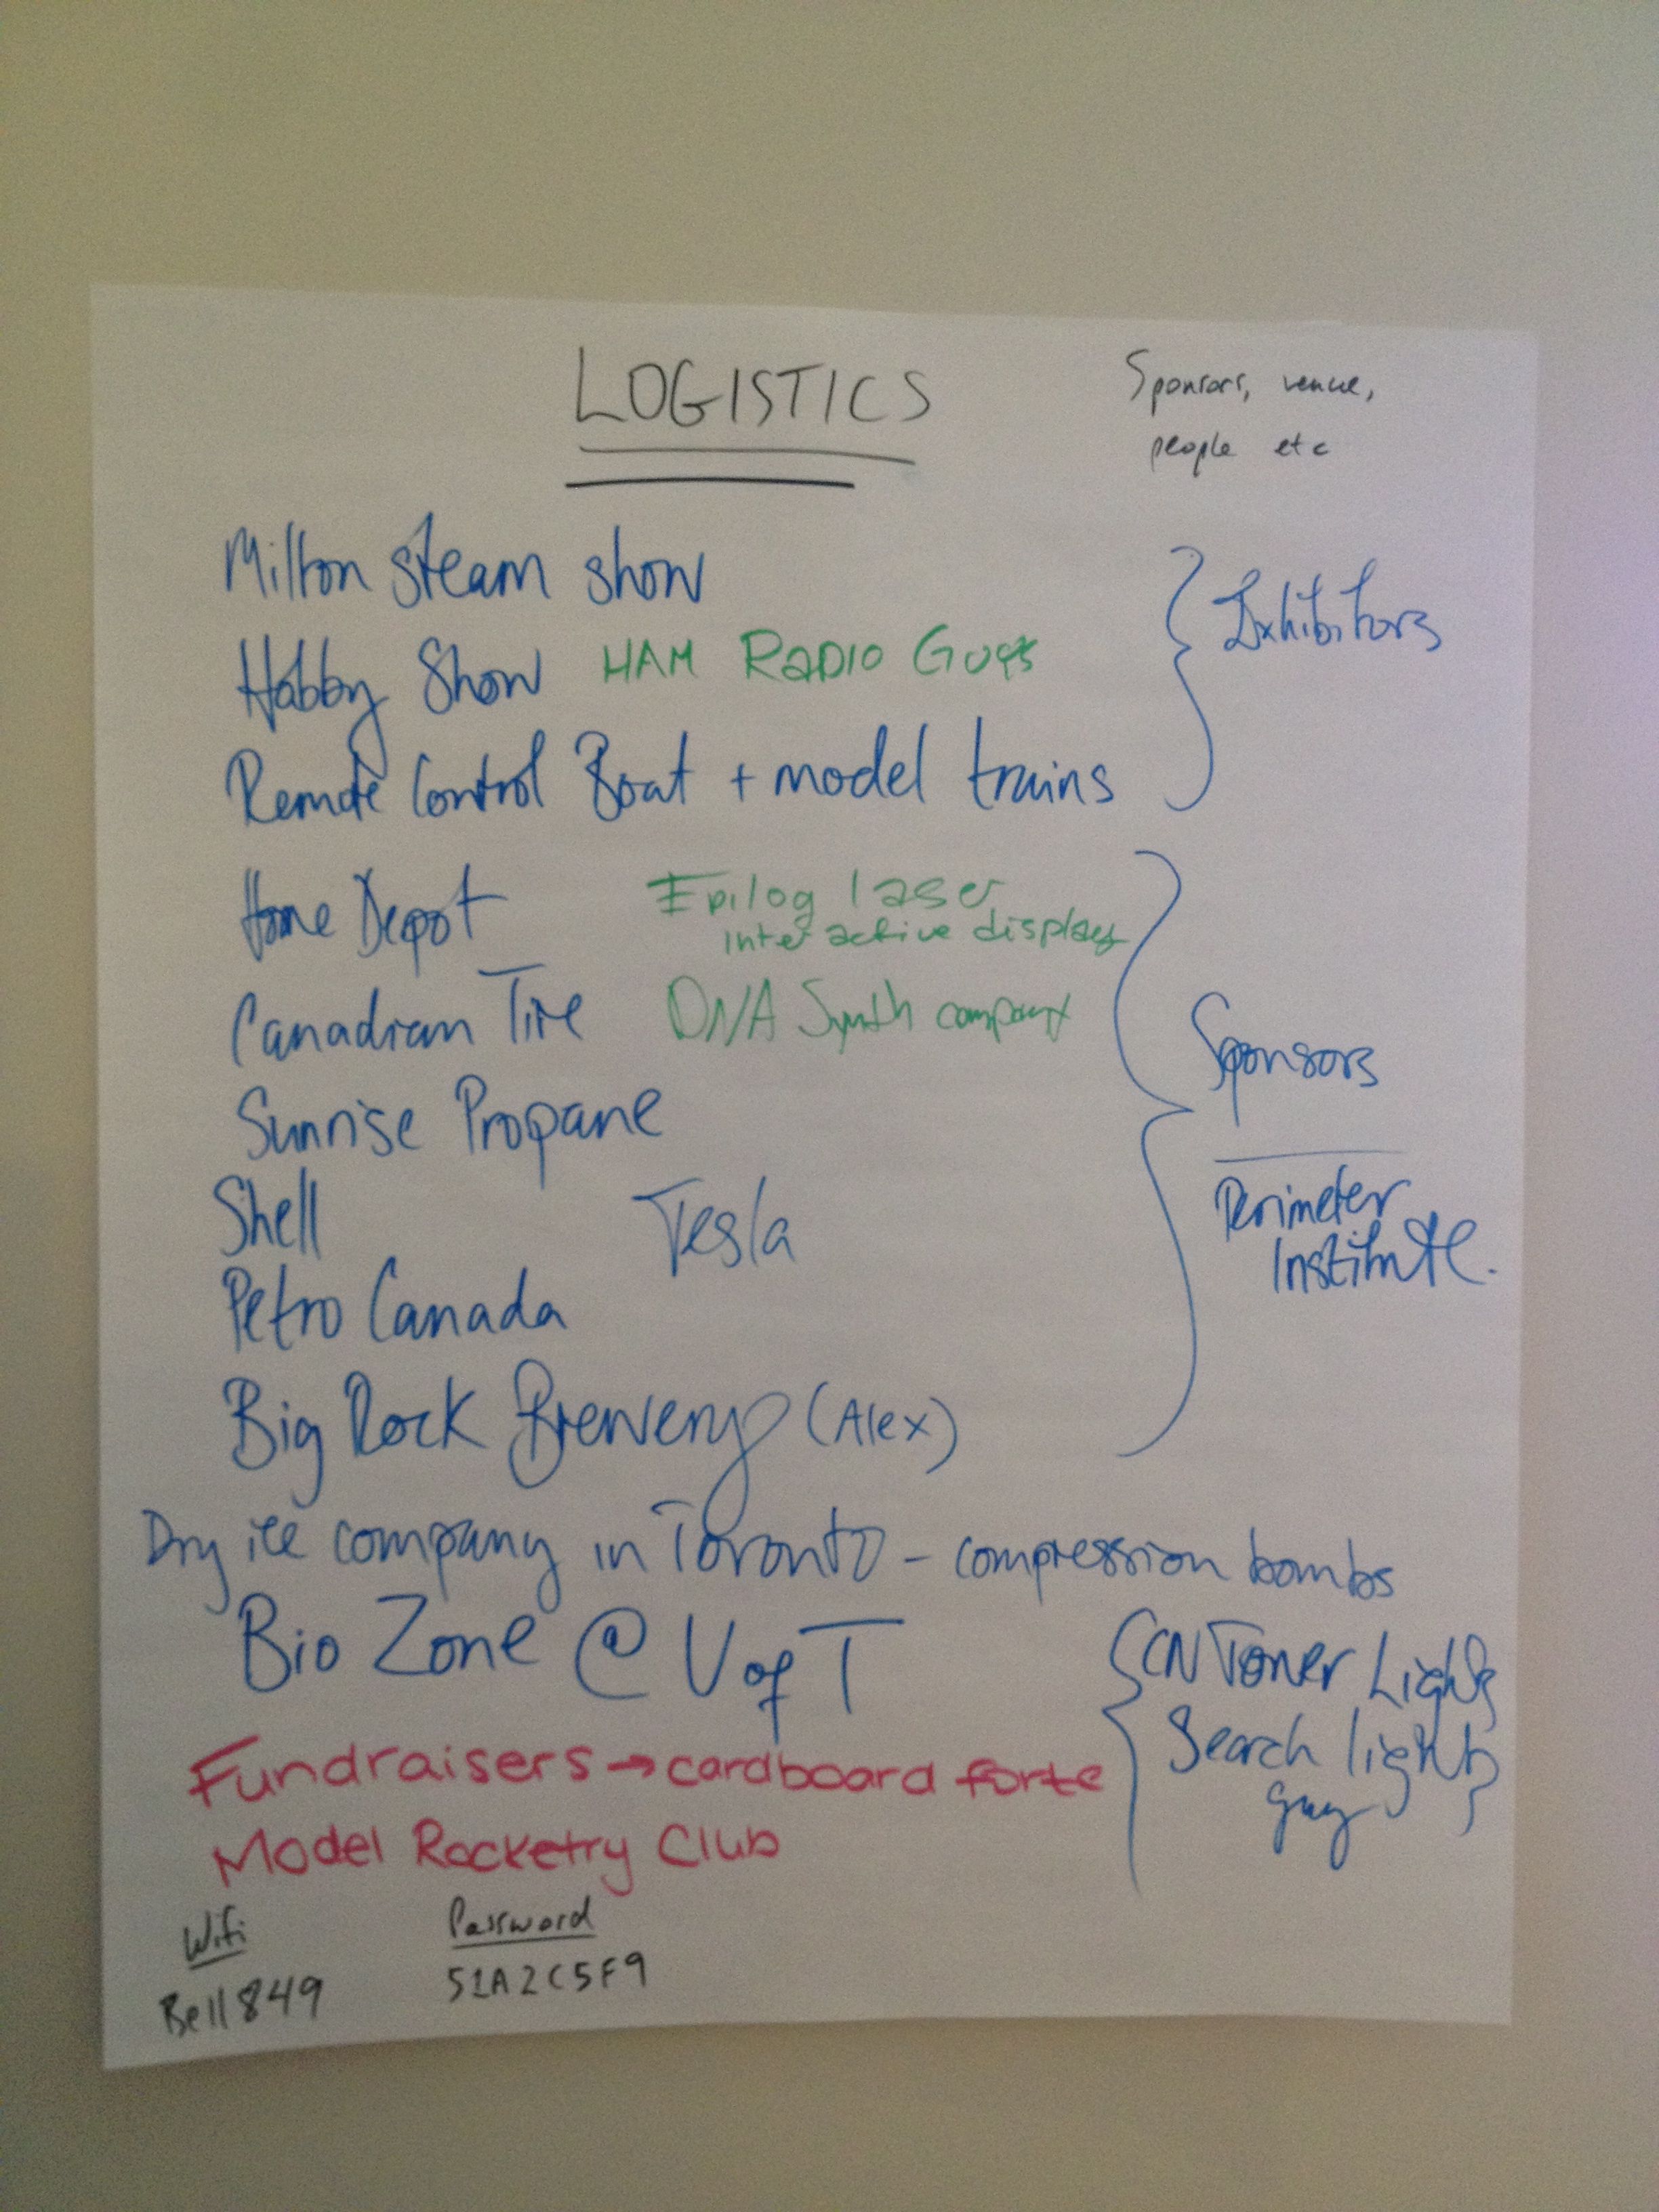 LOGISTICS
Sponsors, venue,
people etc
Milton steam show
Hobby Show HAM RADIO Guys
Remote Control Boat + model trains
Exhibitors
Home Depot
Epilog laser
interactive displays
Canadian Tire DNA Synth company
Sunrise Propane
Shell Tesla
Petro Canada
Big Rock Brewery (Alex)
Sponsors
Perimeter
Institute.
Dry ice company in Toronto - compression bombs
Bio Zone @ U of T
CN Tower Lights
Search lights
guy
Fundraisers → cardboard forte
Model Rocketry Club
Wifi Password
Bell849 51A2C5F9